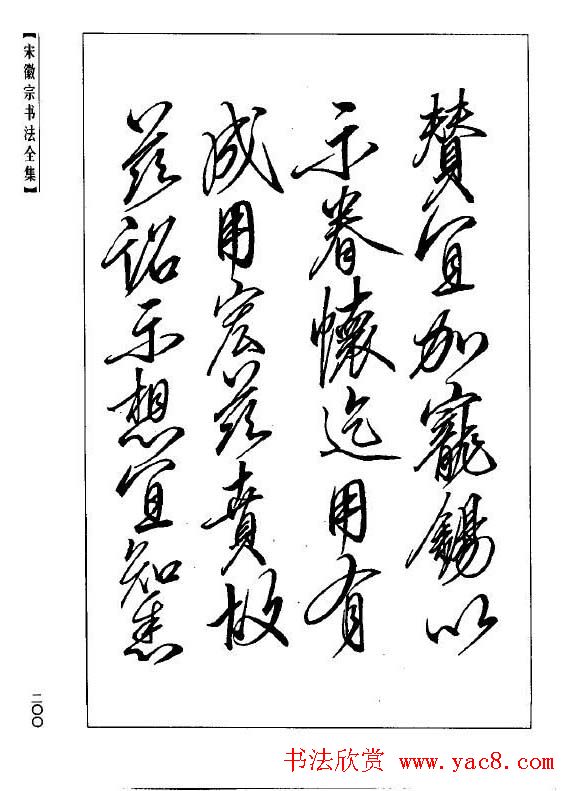 【宋徽宗书法全集】
赞宜加寵錫以
示眷懷迄用有
成用宏茲賁故
茲詔示想宜知悉
二〇〇
书法欣赏 www.yac8.com